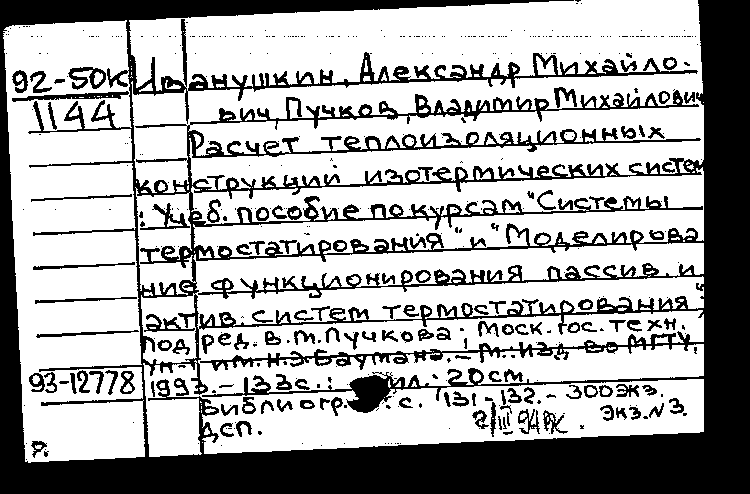 92-50к Иванушкин, Александр Михайло-
1144 вич, Пучков, Владимир Михайлович
Расчет теплоизоляционных
конструкций изотермических систем
: Учеб. пособие по курсам "Системы
термостатирования" и "Моделирова
ние функционирования пассив. и
актив. систем термостатирования";
под ред. В.М. Пучкова; Моск. гос. техн.
ун-т им. Н.Э. Баумана. - М.: Изд-во МГТУ,
93-12778 1993. - 133с.: ил.: 20см.
Библиогр.: с. 131-132. - 300экз.
ДСП. Экз. N 3.
Р.